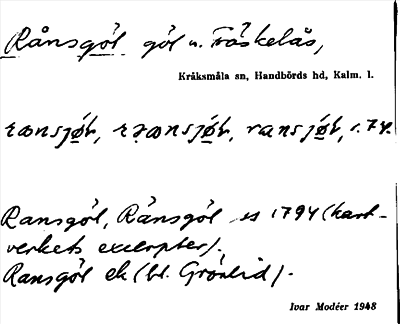 Rånsgöl göl n. Träskelås,
Kråksmåla sn, Handbörds hd, Kalm. l.
Ransgöl, Rånsgöl 1794 (kart-
verkets excerpter).
Ransgöl ek (bl. Grönlid).
Ivar Modéer 1948